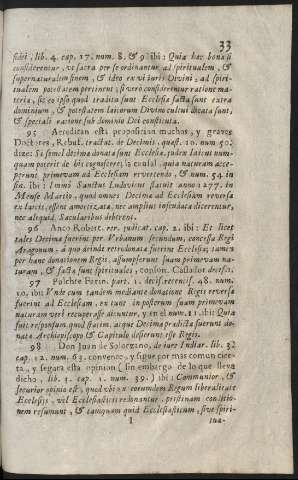 33
sidij, lib. 4. cap. 17. num. 8. & 9. ibi: Quia hæc bona si
considerentur, ut sacra per se ordinantur, ad spiritualem, &
supernaturalem finem, & ideo ex vi iuris Divini, ad spiri-
tualem potestatem pertinent; si vero considerentur ratione ma-
teria, sic eo ipso quod tradita sunt Ecclesiæ facta sunt extra
dominium, & potestatem laicorum Divino cultui dicata sunt,
& speciali ratione sub dominio Dei constituta.
95 Acreditan esta proposicion muchos, y graves
Doctores, Rebuf. tractat. de Decimis, quæst. 10. num. 50.
dize: Si semel decima donata sunt Ecclesiæ, judex laicus num-
quam poterit de his cognoscere, in
perunt primævam ad Ecclesiam revertendo, & num. 54. in
fin. ibi: Immò Sanctus Ludovicus statuit anno 1277. in
Mense Martio, quod omnes Decimæ ad Ecclesiam reversæ
ex laicis, essent amortizatæ, nec amplius infeudatæ dicerentur,
nec aliquid Sæcularibus deberent.
96 Anco Robert. rer. judicat. cap. 2. ibi: Et licet
tales Decimæ fuerint per Urbanum secundum, concessæ Regi
Aragonum: à quo deinde retrodonatæ fuerint Ecclesiæ; tamen
per hanc donationem Regis, assumpserunt suam primævam na-
turam, & factæ sunt spirituales, conson. Cassador decis.
97 Pulchrè Purin. part. 1. decis. recentis. 48. num.
10. ibi: Unde cum tandem mediante donatione Regis reversæ
fuerint ad Ecclesiam, ex tunc in posterum suam primævam
naturam veri recuperasse dicuntur, y en el num. 11. ibi: Quia
fuit responsum quod statim, atque Decimæ præd. fuerunt do-
natæ Archiepiscopo & Capitulo desierunt esse Regis.
98 Don Juan de Solorzano, de iure Indiar. lib. 3.
cap. 12. num. 63. conuence, y sigue por mas comun cier-
ta, y segura esta opinion (sin embargo de lo que lleva
dicho, lib. 3. cap. 1. num. 39.) ibi: Communior, &
securior opinio est, quod ubi ex eorumdem Regum liberalitate
Ecclesijs, vel Ecclesiasticis redonantur, pristinam conditio-
nem resumunt, & tamquam quid Ecclesiasticum, sive spiri-
I
tua-